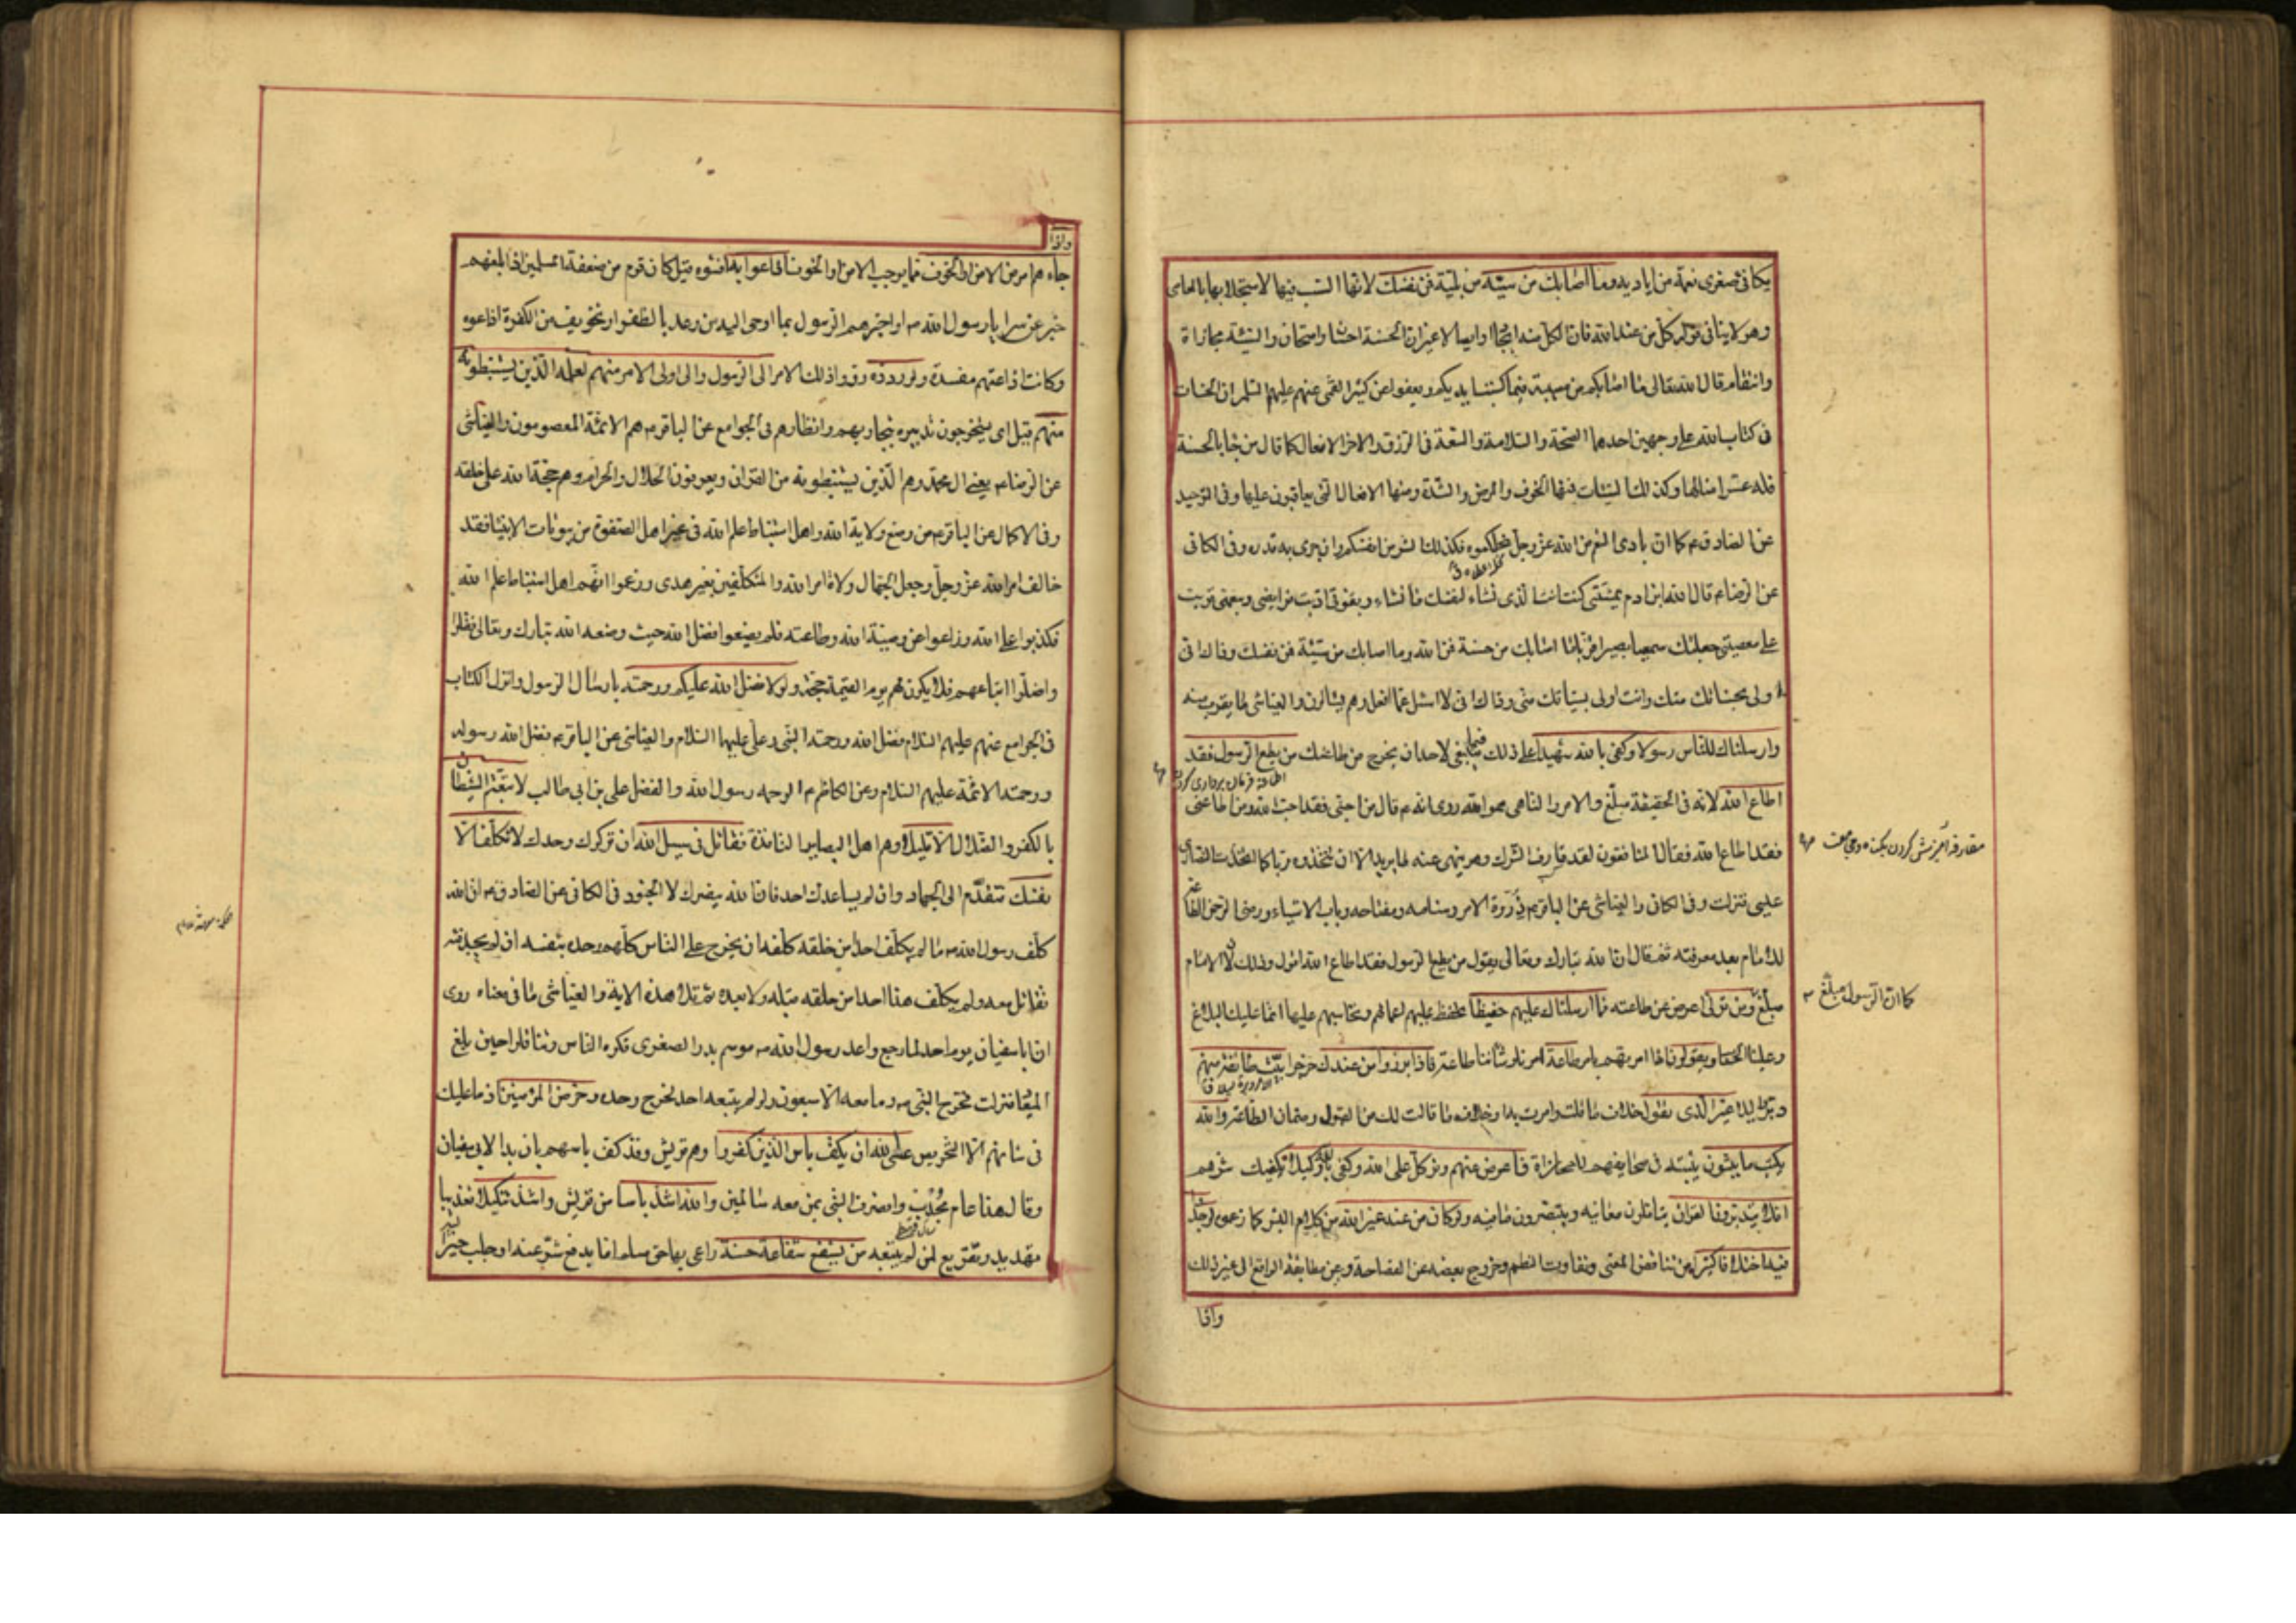 يكافى صغرى نعمة من اياديه وما اصابك من سيئة من بلية فمن نفسك لانها السبب فيها لاستجلابها بالمعاصى
وهو لا ينافى قوله كل من عند الله فان الكل منه ايجادا وايصالا غير ان الحسنة احسان وامتحان والسيئة مجازاة
وانتقام قال الله تعالى ما اصابكم من مصيبة فبما كسبت ايديكم ويعفو عن كثير القمى عنهم عليهم السلم ان الحسنات
فى كتاب الله على وجهين احدهما الصحة والسلامة والسعة فى الرزق والاخر الافعال كما قال من جاء بالحسنة
فله عشر امثالها وكذلك السيئات فمنها الخوف والمرض والشدة ومنها الافعال التى يعاقبون عليها وفى التوحيد
عن الصادق ع كما ان بادى النعم من الله عز وجل نحلكموه فكذلك الشر من انفسكم وان جرى به قدره وفى الكافى
عن الرضا ع قال الله ابن ادم بمشيتى كنت انت الذى تشاء لنفسك ما تشاء وبقوتى اديت فرايضى وبنعمتى قويت
على معصيتى جعلتك سميعا بصيرا قويا ما اصابك من حسنة فمن الله وما اصابك من سيئة فمن نفسك وذاك انى
اولى بحسناتك منك وانت اولى بسيئاتك منى وذاك انى لا اسئل عما افعل وهم يسئلون والعياشى ما يقرب منه
وارسلناك للناس رسولا وكفى بالله شهيدا على ذلك فما ينبغى لاحد ان يخرج من طاعتك من يطع الرسول فقد
اطاعة فرمان بردارى كردن
اطاع الله لانه فى الحقيقة مبلغ والامر والناهى هو الله روى انه ع قال من احبنى فقد احب الله ومن اطاعنى
فقد اطاع الله فقال المنافقون لقد قارف الشرك وهو ينهى عنه ما يريد الا ان نتخذه ربا كما اتخذت النصارى
مقارفه آميزش كردن بكناه
عيسى فنزلت وفى الكافى والعياشى عن الباقر ع ذروة الامر وسنامه ومفتاحه وباب الاشياء ورضى الرحمن الطاعة
للامام بعد معرفته ثم قال ان الله تبارك وتعالى يقول من يطع الرسول فقد اطاع الله اقول وذلك لان الامام
مبلغ ومن تولى اعرض عن طاعته فما ارسلناك عليهم حفيظا تحفظ عليهم اعمالهم وتحاسبهم عليها انما عليك البلاغ
كما ان الرسول مبلغ
وعلينا الحساب ويقولون اذا امرتهم بامر طاعة امرنا وشاننا طاعة فاذا برزوا من عندك خرجوا بيت طائفة منهم
دبروا ليلا غير الذى تقول خلاف ما قلت وامرت به او خلاف ما قالت لك من القبول وضمان الطاعة والله
يكتب ما يبيتون يثبته فى صحايفهم للمجازاة فاعرض عنهم وتوكل على الله وكفى بالله وكيلا يكفيك شرهم
افلا يتدبرون القران يتاملون معانيه ويتبصرون ما فيه ولو كان من عند غير الله من كلام البشر كما زعموه لوجدوا
فيه اختلافا كثيرا من تناقض المعنى وتفاوت النظم وخروج بعضه عن الفصاحة وعن مطابقة الواقع الى غير ذلك
واذا
واذا
جاءهم امر من الامن او الخوف مما يوجب الامن او الخوف اذاعوا به افشوه قيل كان قوم من ضعفة المسلمين اذا بلغهم
خبر عن سرايا رسول الله ص او اخبرهم الرسول بما اوحى اليه من وعد بالظفر او تخويف من الكفرة اذاعوه
وكانت اذاعتهم مفسدة ولو ردوه ردوا ذلك الامر الى الرسول والى اولى الامر منهم لعلمه الذين يستنبطونه
منهم قيل اى يستخرجون تدبيره بتجاربهم وانظارهم فى الجوامع عن الباقر ع هم الائمة المعصومون والعياشى
عن الرضا ع يعنى ال محمد وهم الذين يستنبطونه من القران ويعرفون الحلال والحرام وهم حجة الله على خلقه
وفى الاكمال عن الباقر ع من وضع ولاية الله واهل استنباط علم الله فى غير اهل الصفوة من بيوتات الانبياء فقد
خالف امر الله عز وجل وجعل الجهال ولاة امر الله والمتكلفين بغير هدى وزعموا انهم اهل استنباط علم الله
فكذبوا على الله وزاغوا عن وصية الله وطاعته فلم يضعوا فضل الله حيث وضعه الله تبارك وتعالى فضلوا
واضلوا اتباعهم فلا يكون لهم يوم القيمة حجة ولولا فضل الله عليكم ورحمته بارسال الرسول وانزال الكتاب
فى الجوامع عنهم عليهم السلام فضل الله ورحمته النبى وعلى عليهما السلام والعياشى عن الباقر ع فضل الله رسوله
ورحمته الائمة عليهم السلام وعن الكاظم ع الرحمه رسول الله والفضل على بن ابى طالب لاتبعتم الشيطان
بالكفر والضلال الا قليلا وهم اهل البصاير النافذة فقاتل فى سبيل الله ان تركوك وحدك لا تكلف الا
نفسك فتقدم الى الجهاد وان لم يساعدك احد فان الله ينصرك لا الجنود فى الكافى عن الصادق ع ان الله
كلف رسول الله ص ما لم يكلف احدا من خلقه كلفه ان يخرج على الناس كلهم وحده بنفسه ان لم يجد فئة
تقاتل معه ولم يكلف هذا احدا من خلقه قبله ولا بعده ثم تلا هذه الاية والعياشى ما فى معناه روى
ان ابا سفيان يوم احد لما رجع واعد رسول الله ص موسم بدر الصغرى فكره الناس وتثاقلوا حين بلغ
الميعاد فنزلت فخرج النبى ص وما معه الا سبعون ولو لم يتبعه احد لخرج وحده وحرض المؤمنين اذ ما عليك
فى شانهم الا التحريص عسى الله ان يكف باس الذين كفروا وهم قريش وقد كف باسهم بان بدا لابى سفيان
وقال هذا عام مجدب وانصرف النبى بمن معه سالمين والله اشد باسا من قريش واشد تنكيلا تعذيبا
تهديد وتقريع لمن لم يتبعه من يشفع شفاعة حسنة راعى بها حق مسلم اما بدفع شر عنه او جلب خير